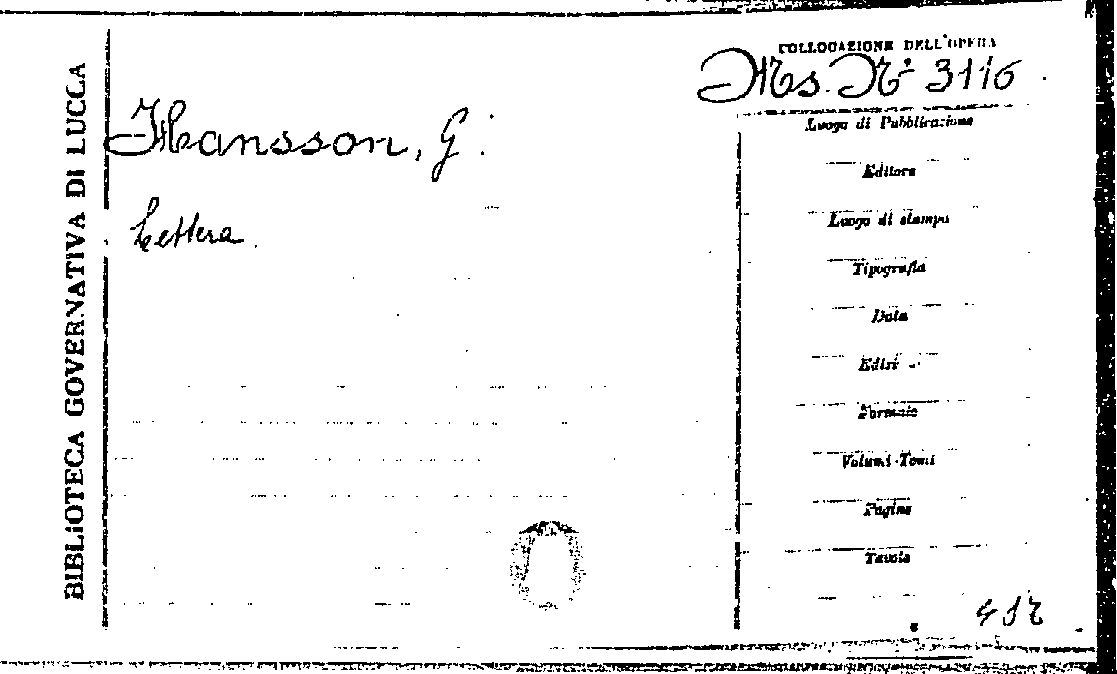 BIBLIOTECA GOVERNATIVA DI LUCCA
COLLOCAZIONE DELL'OPERA
Ms. N° 3116
Hansson, G.
Lettera
Luogo di Pubblicazione
Editore
Luogo di stampa
Tipografia
Data
Formato
Volumi-Tomi
Pagine
Tavole